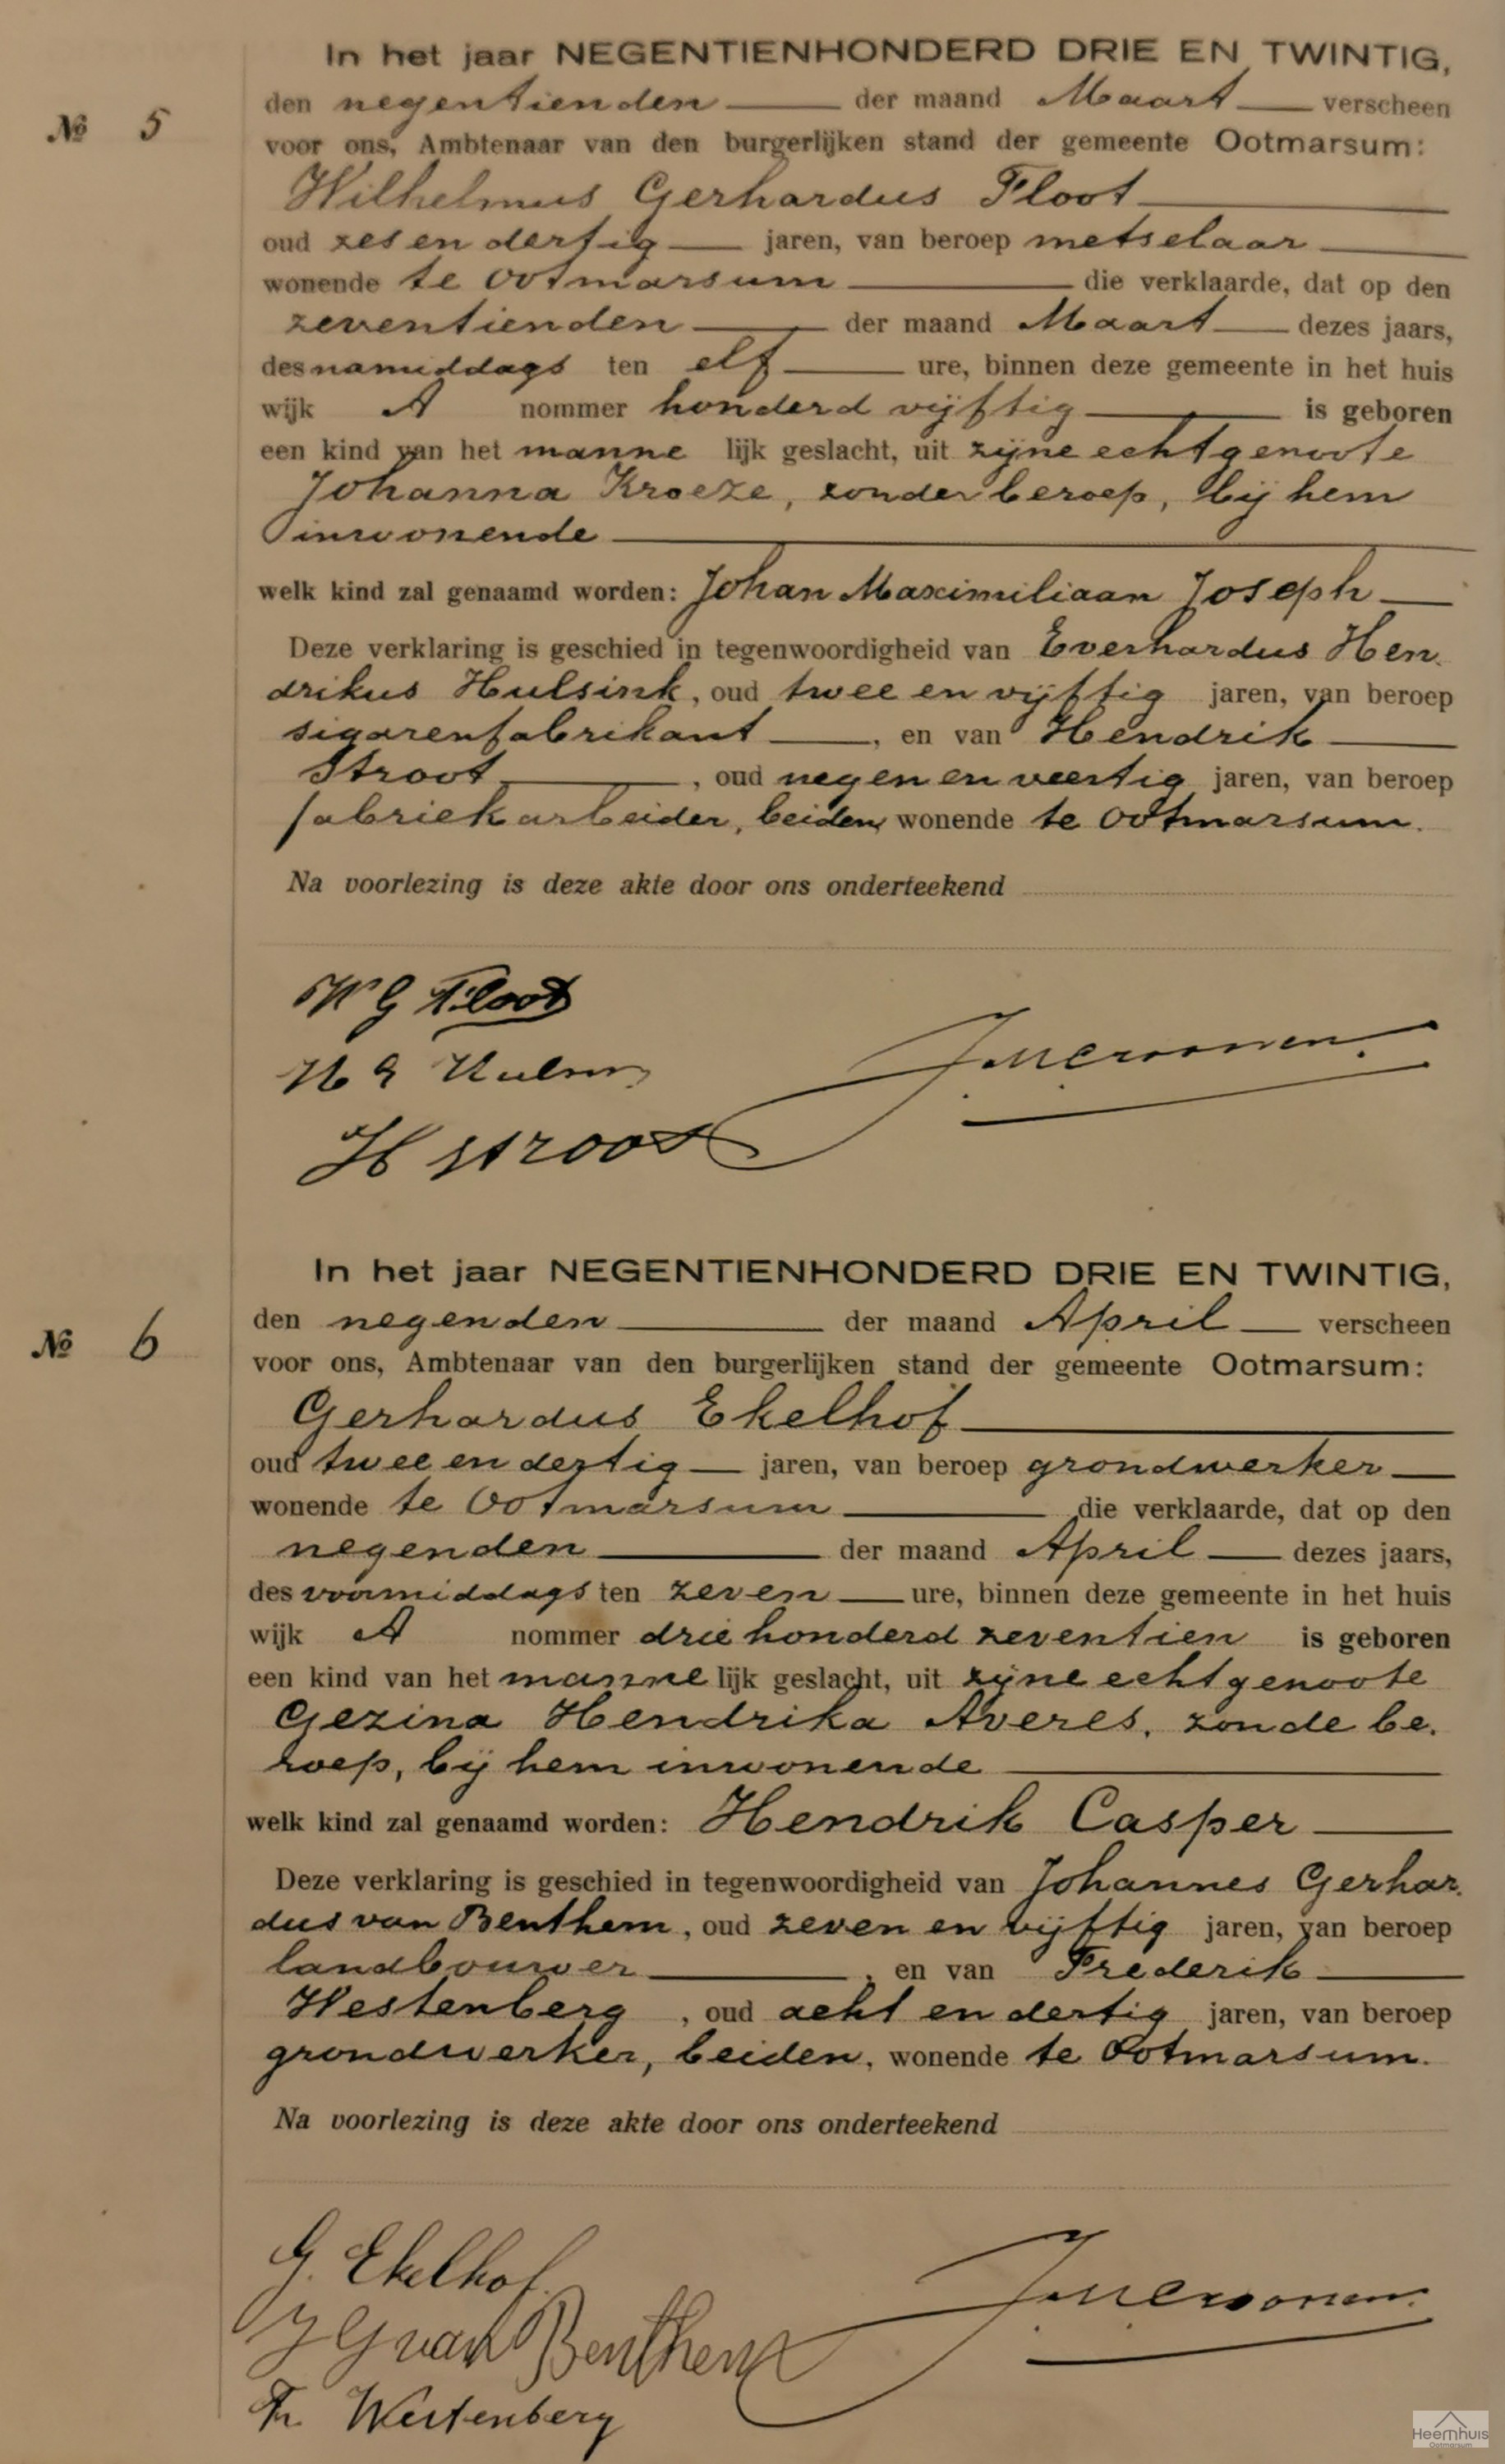 In het jaar NEGENTIENHONDERD DRIE EN TWINTIG,
№ 5
den negentienden der maand Maart verscheen
voor ons, Ambtenaar van den burgerlijken stand der gemeente Ootmarsum:
Wilhelmus Gerhardus Floot
oud zes en dertig jaren, van beroep metselaar
wonende te Ootmarsum die verklaarde, dat op den
zeventienden der maand Maart dezes jaars,
des namiddags ten elf ure, binnen deze gemeente in het huis
wijk A nommer honderd vijftig is geboren
een kind van het manne lijk geslacht, uit zijne echtgenoote
Johanna Kroeze, zonder beroep, bij hem
inwonende
welk kind zal genaamd worden: Johan Maximiliaan Joseph
Deze verklaring is geschied in tegenwoordigheid van Everhardus Hen-
drikus Hulsink, oud twee en vijftig jaren, van beroep
sigarenfabrikant, en van Hendrik
Stroot, oud negen en veertig jaren, van beroep
fabriekarbeider, beiden, wonende te Ootmarsum.
Na voorlezing is deze akte door ons onderteekend
W G Floot
H Stroot
In het jaar NEGENTIENHONDERD DRIE EN TWINTIG,
№ 6
den negenden der maand April verscheen
voor ons, Ambtenaar van den burgerlijken stand der gemeente Ootmarsum:
Gerhardus Ekelhof
oud twee en dertig jaren, van beroep grondwerker
wonende te Ootmarsum die verklaarde, dat op den
negenden der maand April dezes jaars,
des voormiddags ten zeven ure, binnen deze gemeente in het huis
wijk A nommer drie honderd zeventien is geboren
een kind van het manne lijk geslacht, uit zijne echtgenoote
Gezina Hendrika Averes, zonde be-
roep, bij hem inwonende
welk kind zal genaamd worden: Hendrik Casper
Deze verklaring is geschied in tegenwoordigheid van Johannes Gerhar-
dus van Benthem, oud zeven en vijftig jaren, van beroep
landbouwer, en van Frederik
Westenberg, oud acht en dertig jaren, van beroep
grondwerker, beiden, wonende te Ootmarsum.
Na voorlezing is deze akte door ons onderteekend
G. Ekelhof.
J G van Benthem
Fr. Westenberg
Heemhuis
Ootmarsum